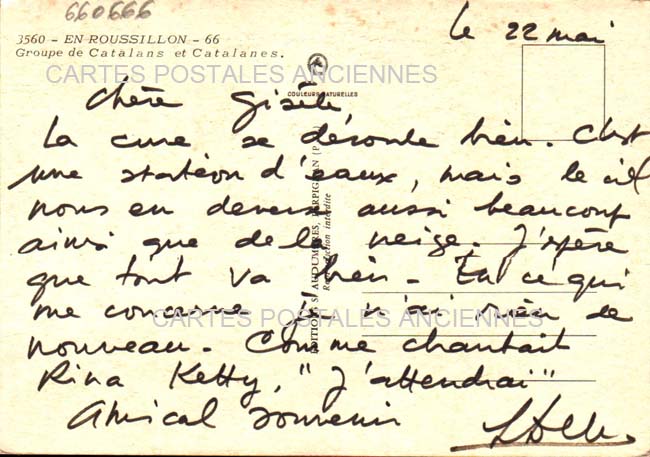 660666
le 22 mai
3560 - EN ROUSSILLON - 66
Groupe de Catalans et Catalanes.
CARTES POSTALES ANCIENNES
COULEURS NATURELLES
Chère Gisèle
La cure se déroule bien. C'est
une station d'eaux, mais le ciel
nous en deverse aussi beaucoup
ainsi que de la neige. J'espère
que tout va bien. En ce qui
me concerne je n'ai rien de
nouveau. Comme chantait
Rina Ketty, "J'attendrai"
Amical souvenir
CARTES POSTALES ANCIENNES
Reproduction interdite